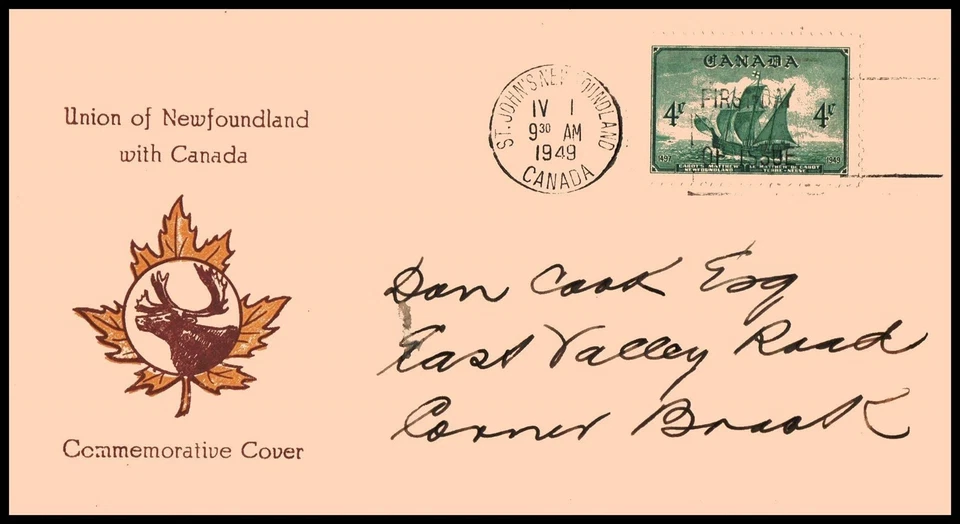 Union of Newfoundland
with Canada
Commemorative Cover
ST. JOHN'S NEWFOUNDLAND
IV 1
9³⁰ AM
1949
CANADA
CANADA
4¢ 4¢
FIRST DAY
OF ISSUE
1497 1949
CABOT'S MATTHEW LE MATTHEW DE CABOT
NEWFOUNDLAND TERRE-NEUVE
Don Cook Esq
East Valley Road
Corner Brook